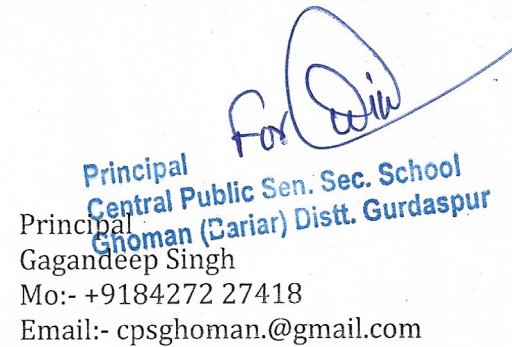 For
Principal
Central Public Sen. Sec. School
Ghoman (Dariar) Distt. Gurdaspur
Principal
Gagandeep Singh
Mo:- +9184272 27418
Email:- cpsghoman.@gmail.com